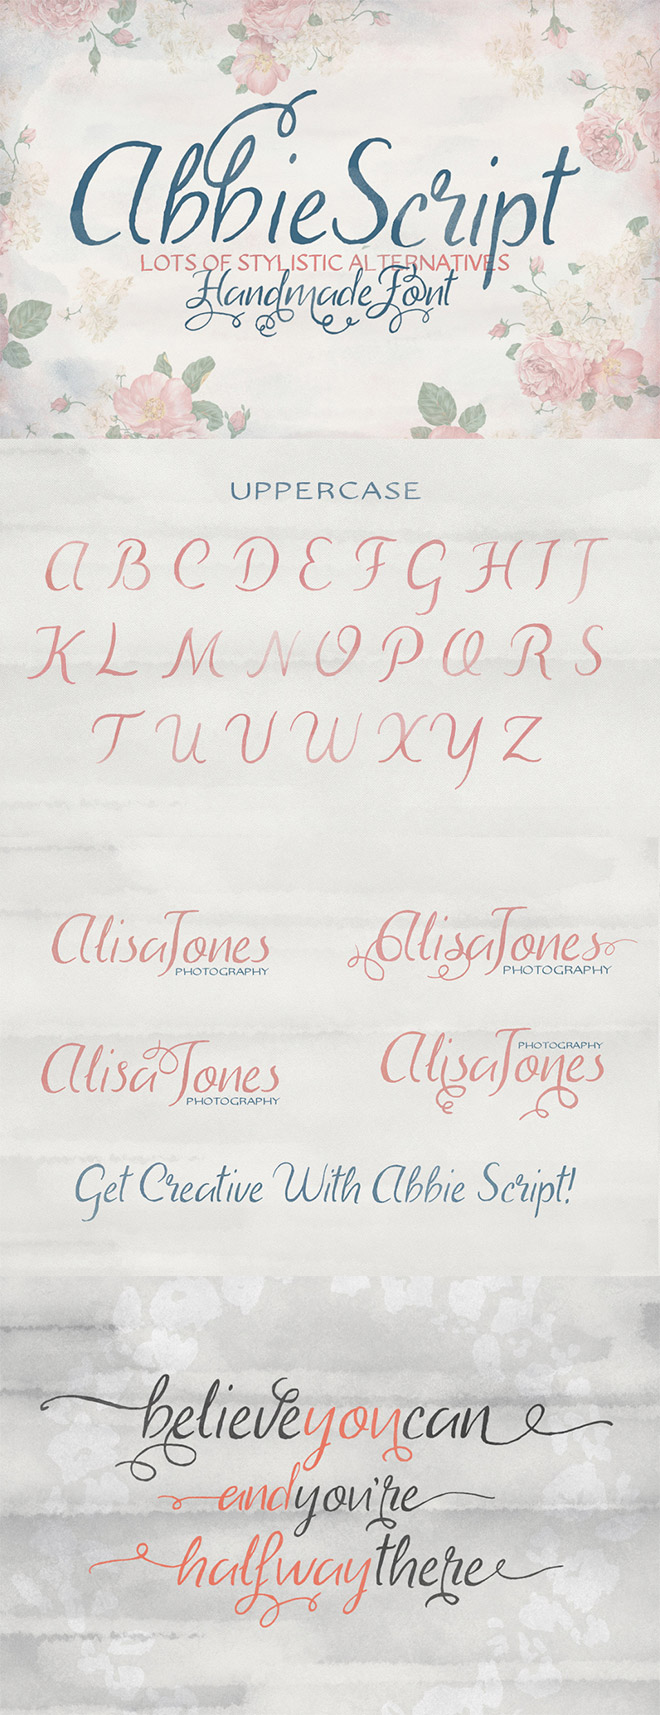 AbbieScript
LOTS OF STYLISTIC ALTERNATIVES
Handmade Font
UPPERCASE
A B C D E F G H I J
K L M N O P Q R S
T U V W X Y Z
AlisaJones
PHOTOGRAPHY
AlisaJones
PHOTOGRAPHY
AlisaJones
PHOTOGRAPHY
PHOTOGRAPHY
AlisaJones
Get Creative With Abbie Script!
believeyoucan
andyou're
halfwaythere